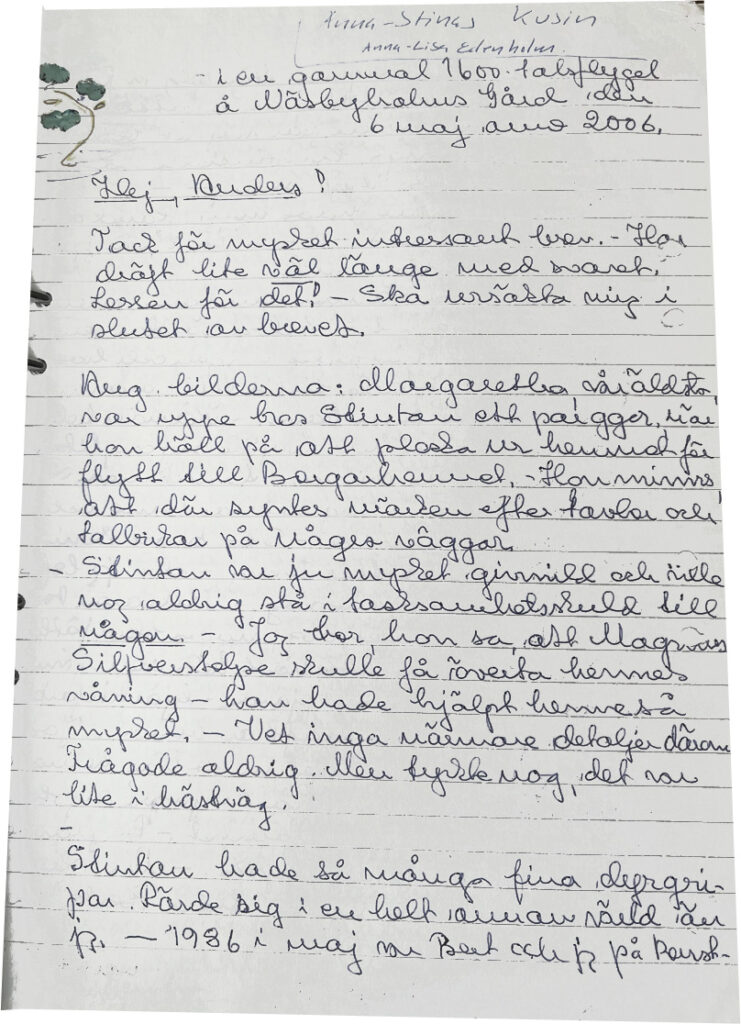 Anna-Stinas Kusin
Anna-Lisa Edenholm.
- i en gammal 1600-talsflygel
å Näsbyholms Gård den
6 maj anno 2006.
Hej, Anders!
Tack för mycket intressant brev. - Har
dröjt lite väl länge med svaret.
Ledsen för det! - Ska ursäkta mig i
slutet av brevet.
Ang. bilderna: Margaretha, vår äldsta,
var uppe hos Stintan ett par ggr, när
hon höll på att plocka ur hemmet för
flytt till Borgarhemmet. - Hon minns
att där syntes märken efter tavlor och
talbickar på några väggar.
- Stintan var ju mycket givmild och ville
nog aldrig stå i tacksamhetsskuld till
någon. - Jag tror, hon sa, att Magnus
Silfverstolpe skulle få överta hennes
våning - han hade hjälpt henne så
mycket. - Vet inga närmare detaljer därom
Frågade aldrig. Men tyckte nog, det var
lite i hästväg.
-
Stintan hade så många fina dyrgri-
par. Rörde sig i en helt annan värld än
jag. - 1986 i maj var Bert och jag på